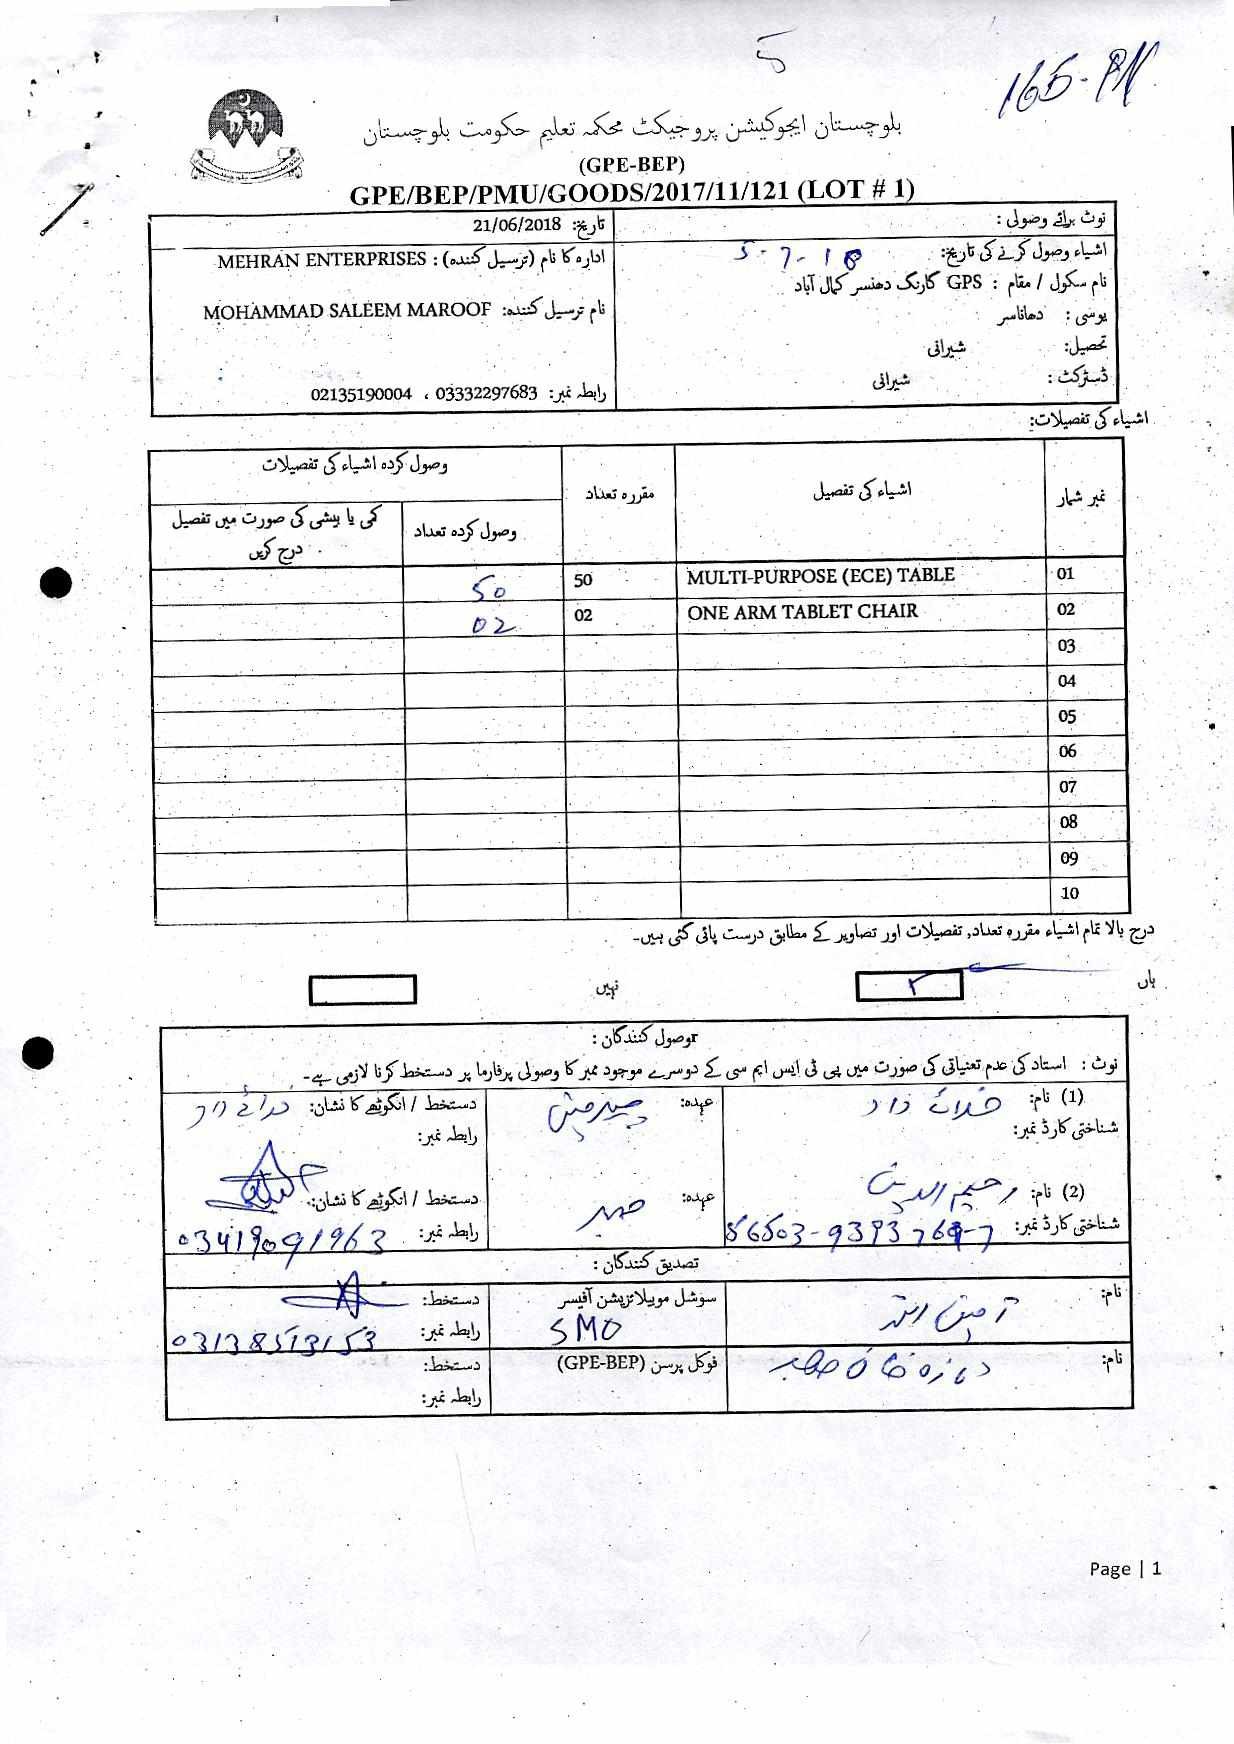 5
165-PN
بلوچستان ایجوکیشن پروجیکٹ محکمہ تعلیم حکومت بلوچستان
(GPE-BEP)
GPE/BEP/PMU/GOODS/2017/11/121 (LOT # 1)
نوٹ برائے وصولی :
اشیاء وصول کرنے کی تاریخ: 5-7-18
نام سکول / مقام : GPS کارنگ دھنسر کمال آباد
یوسی : دھاناسر
تحصیل: شیرانی
ڈسٹرکٹ : شیرانی
تاریخ: 21/06/2018
ادارہ کا نام (ترسیل کنندہ) : MEHRAN ENTERPRISES
نام ترسیل کنندہ: MOHAMMAD SALEEM MAROOF
رابطہ نمبر: 03332297683 ، 02135190004
اشیاء کی تفصیلات:
نمبر شمار اشیاء کی تفصیل مقررہ تعداد وصول کردہ اشیاء کی تفصیلات
وصول کردہ تعداد کمی یا بیشی کی صورت میں تفصیل درج کریں
01 MULTI-PURPOSE (ECE) TABLE 50 50
02 ONE ARM TABLET CHAIR 02 02
03
04
05
06
07
08
09
10
درج بالا تمام اشیاء مقررہ تعداد, تفصیلات اور تصاویر کے مطابق درست پائی گئی ہیں۔
ہاں نہیں
وصول کنندگان :
نوٹ : استاد کی عدم تعنیاتی کی صورت میں پی ٹی ایس ایم سی کے دوسرے موجود ممبر کا وصولی پرفارما پر دستخط کرنا لازمی ہے۔
(1) نام: خدائے داد عہدہ: چیئرمین دستخط / انگوٹھے کا نشان:
شناختی کارڈ نمبر: رابطہ نمبر:
(2) نام: رحیم الدین عہدہ: ممبر دستخط / انگوٹھے کا نشان:
شناختی کارڈ نمبر: 56503-9393769-7 رابطہ نمبر: 03419091963
تصدیق کنندگان :
نام: سوشل موبیلائزیشن آفیسر دستخط:
SMO رابطہ نمبر: 03138513153
نام: فوکل پرسن (GPE-BEP) دستخط:
رابطہ نمبر:
Page | 1